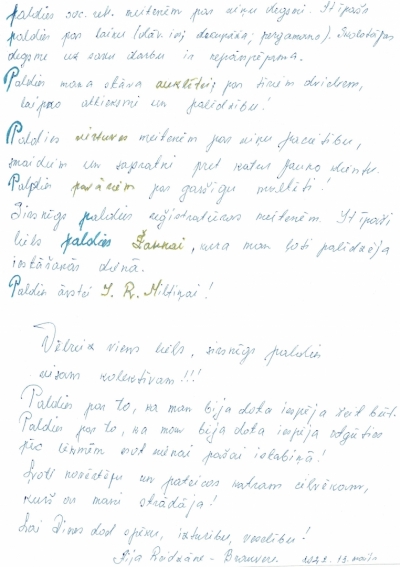 paldies soc. reh. meitenēm par viņu degsmi. Stīpašs
paldies par laiku (dāv. iej dekupāža, pergamano).
degsme uz savu darbu ir nepārspējama.
Paldies mana stāva auklītei, par siliem dvieļiem,
laipno attieksmi un palīdzību!
Paldies virtuves meitenēm par viņu pacietību,
smaidiem un sapratni pret katru jauno klientu.
Paldies pavāriem par garšīgu maltīti!
Sirsnīgs paldies reģistratūras meitenēm. Stīpaši
liels paldies Žannai, kura man ļoti palīdzēja
iestāšanās dienā.
Paldies ārstei I. R. Miltiņai!
Vēlreiz viens liels, sirsnīgs paldies
visam kolektīvam!!!
Paldies par to, ka man bija dota iespēja šeit būt.
Paldies par to, ka man bija dota iespēja atgūties
pēc lēkmēm esot vienai pašai istabiņā!
Ļoti novērtēju un pateicos katram cilvēkam,
kurš ar mani strādāja!
Lai Dievs dod spēku, izturību, veselību!
13. maijs